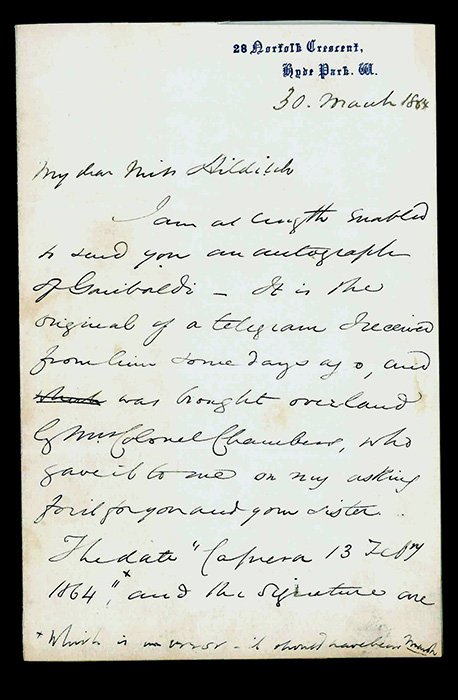 28 Norfolk Crescent,
Hyde Park. W.
30. March 1864
My dear Miss Hilditch
I am at length enabled
to send you an autograph
of Garibaldi — It is the
original of a telegram I received
from him some days ago, and
which was brought overland
by Mrs Colonel Chambers, who
gave it to me on my asking
for it for you and your sister.
The date "Caprera 13 Febry
1864,"* and the signature are
* Which is an error — it should have been March